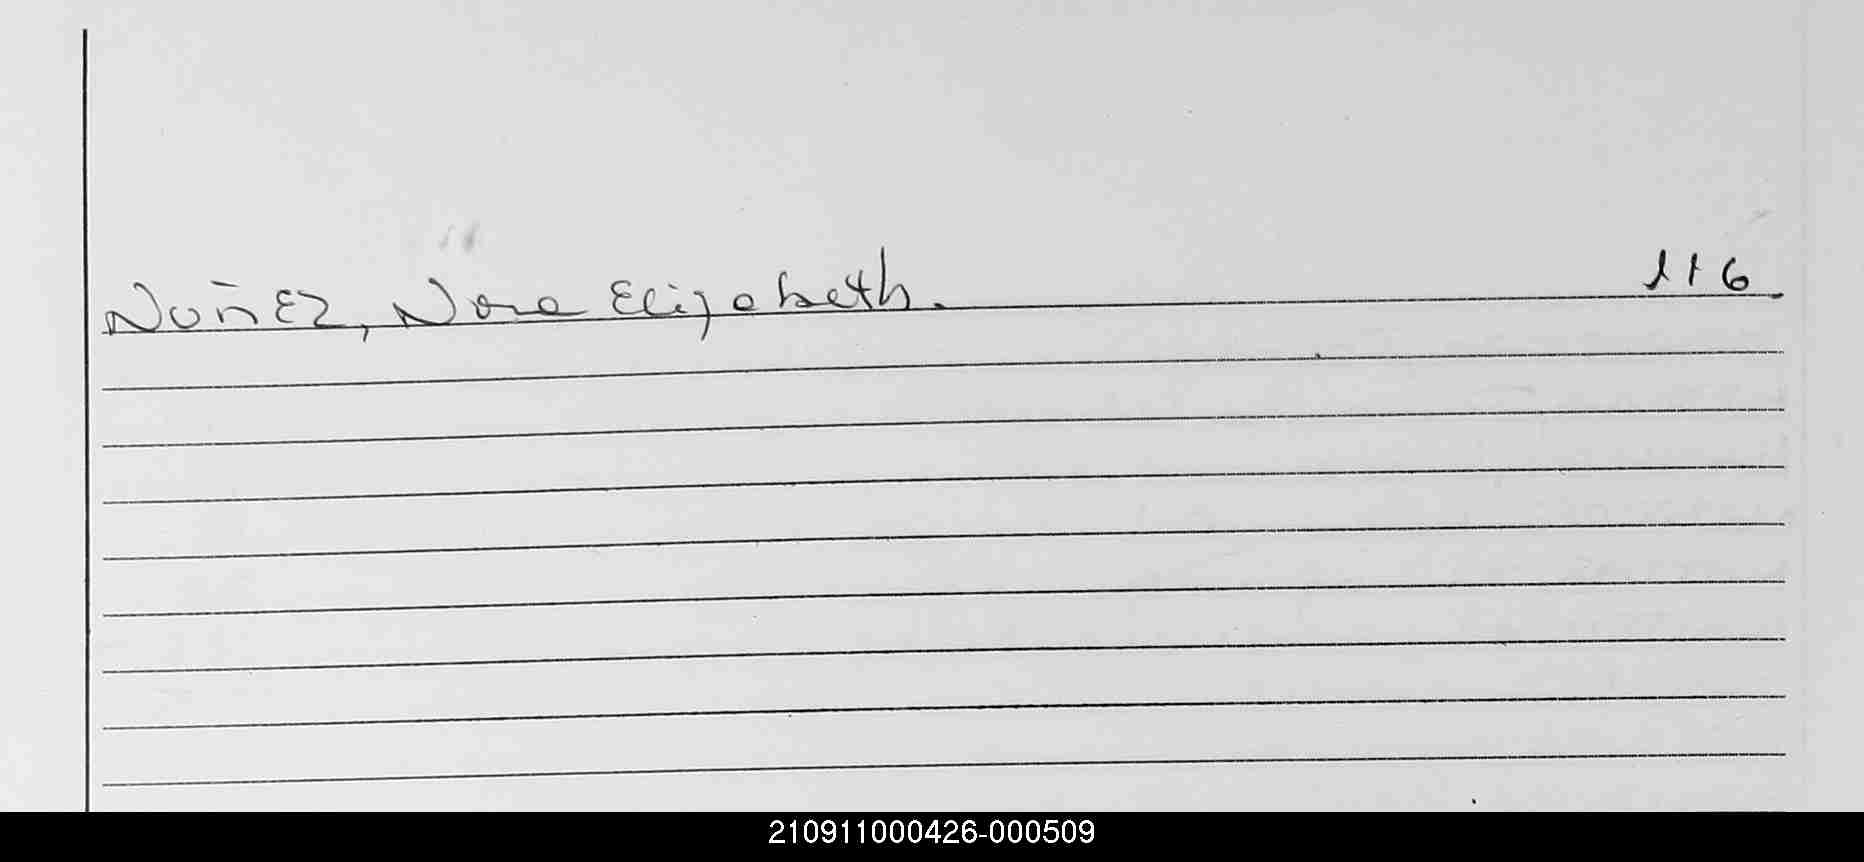 Nuñez, Nora Elizabeth. 116
210911000426-000509